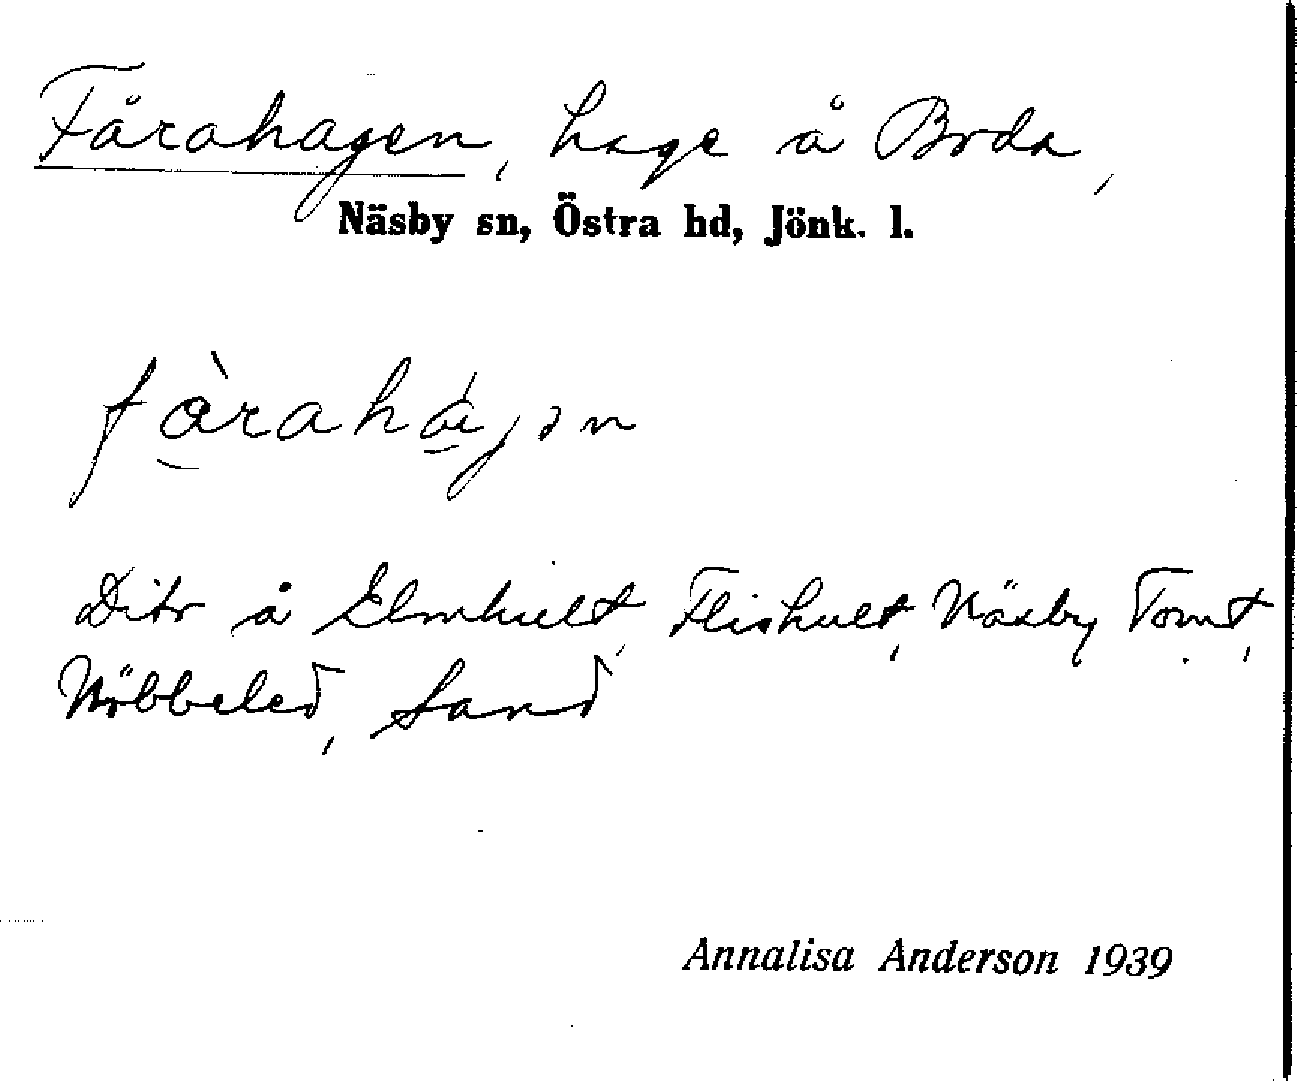 Fårahagen, hage å Boda,
Näsby sn, Östra hd, Jönk. l.
fàrahágən
Dito å Elmhult, Flishult, Näsby Tomt,
Nöbbeled, Sand
Annalisa Anderson 1939